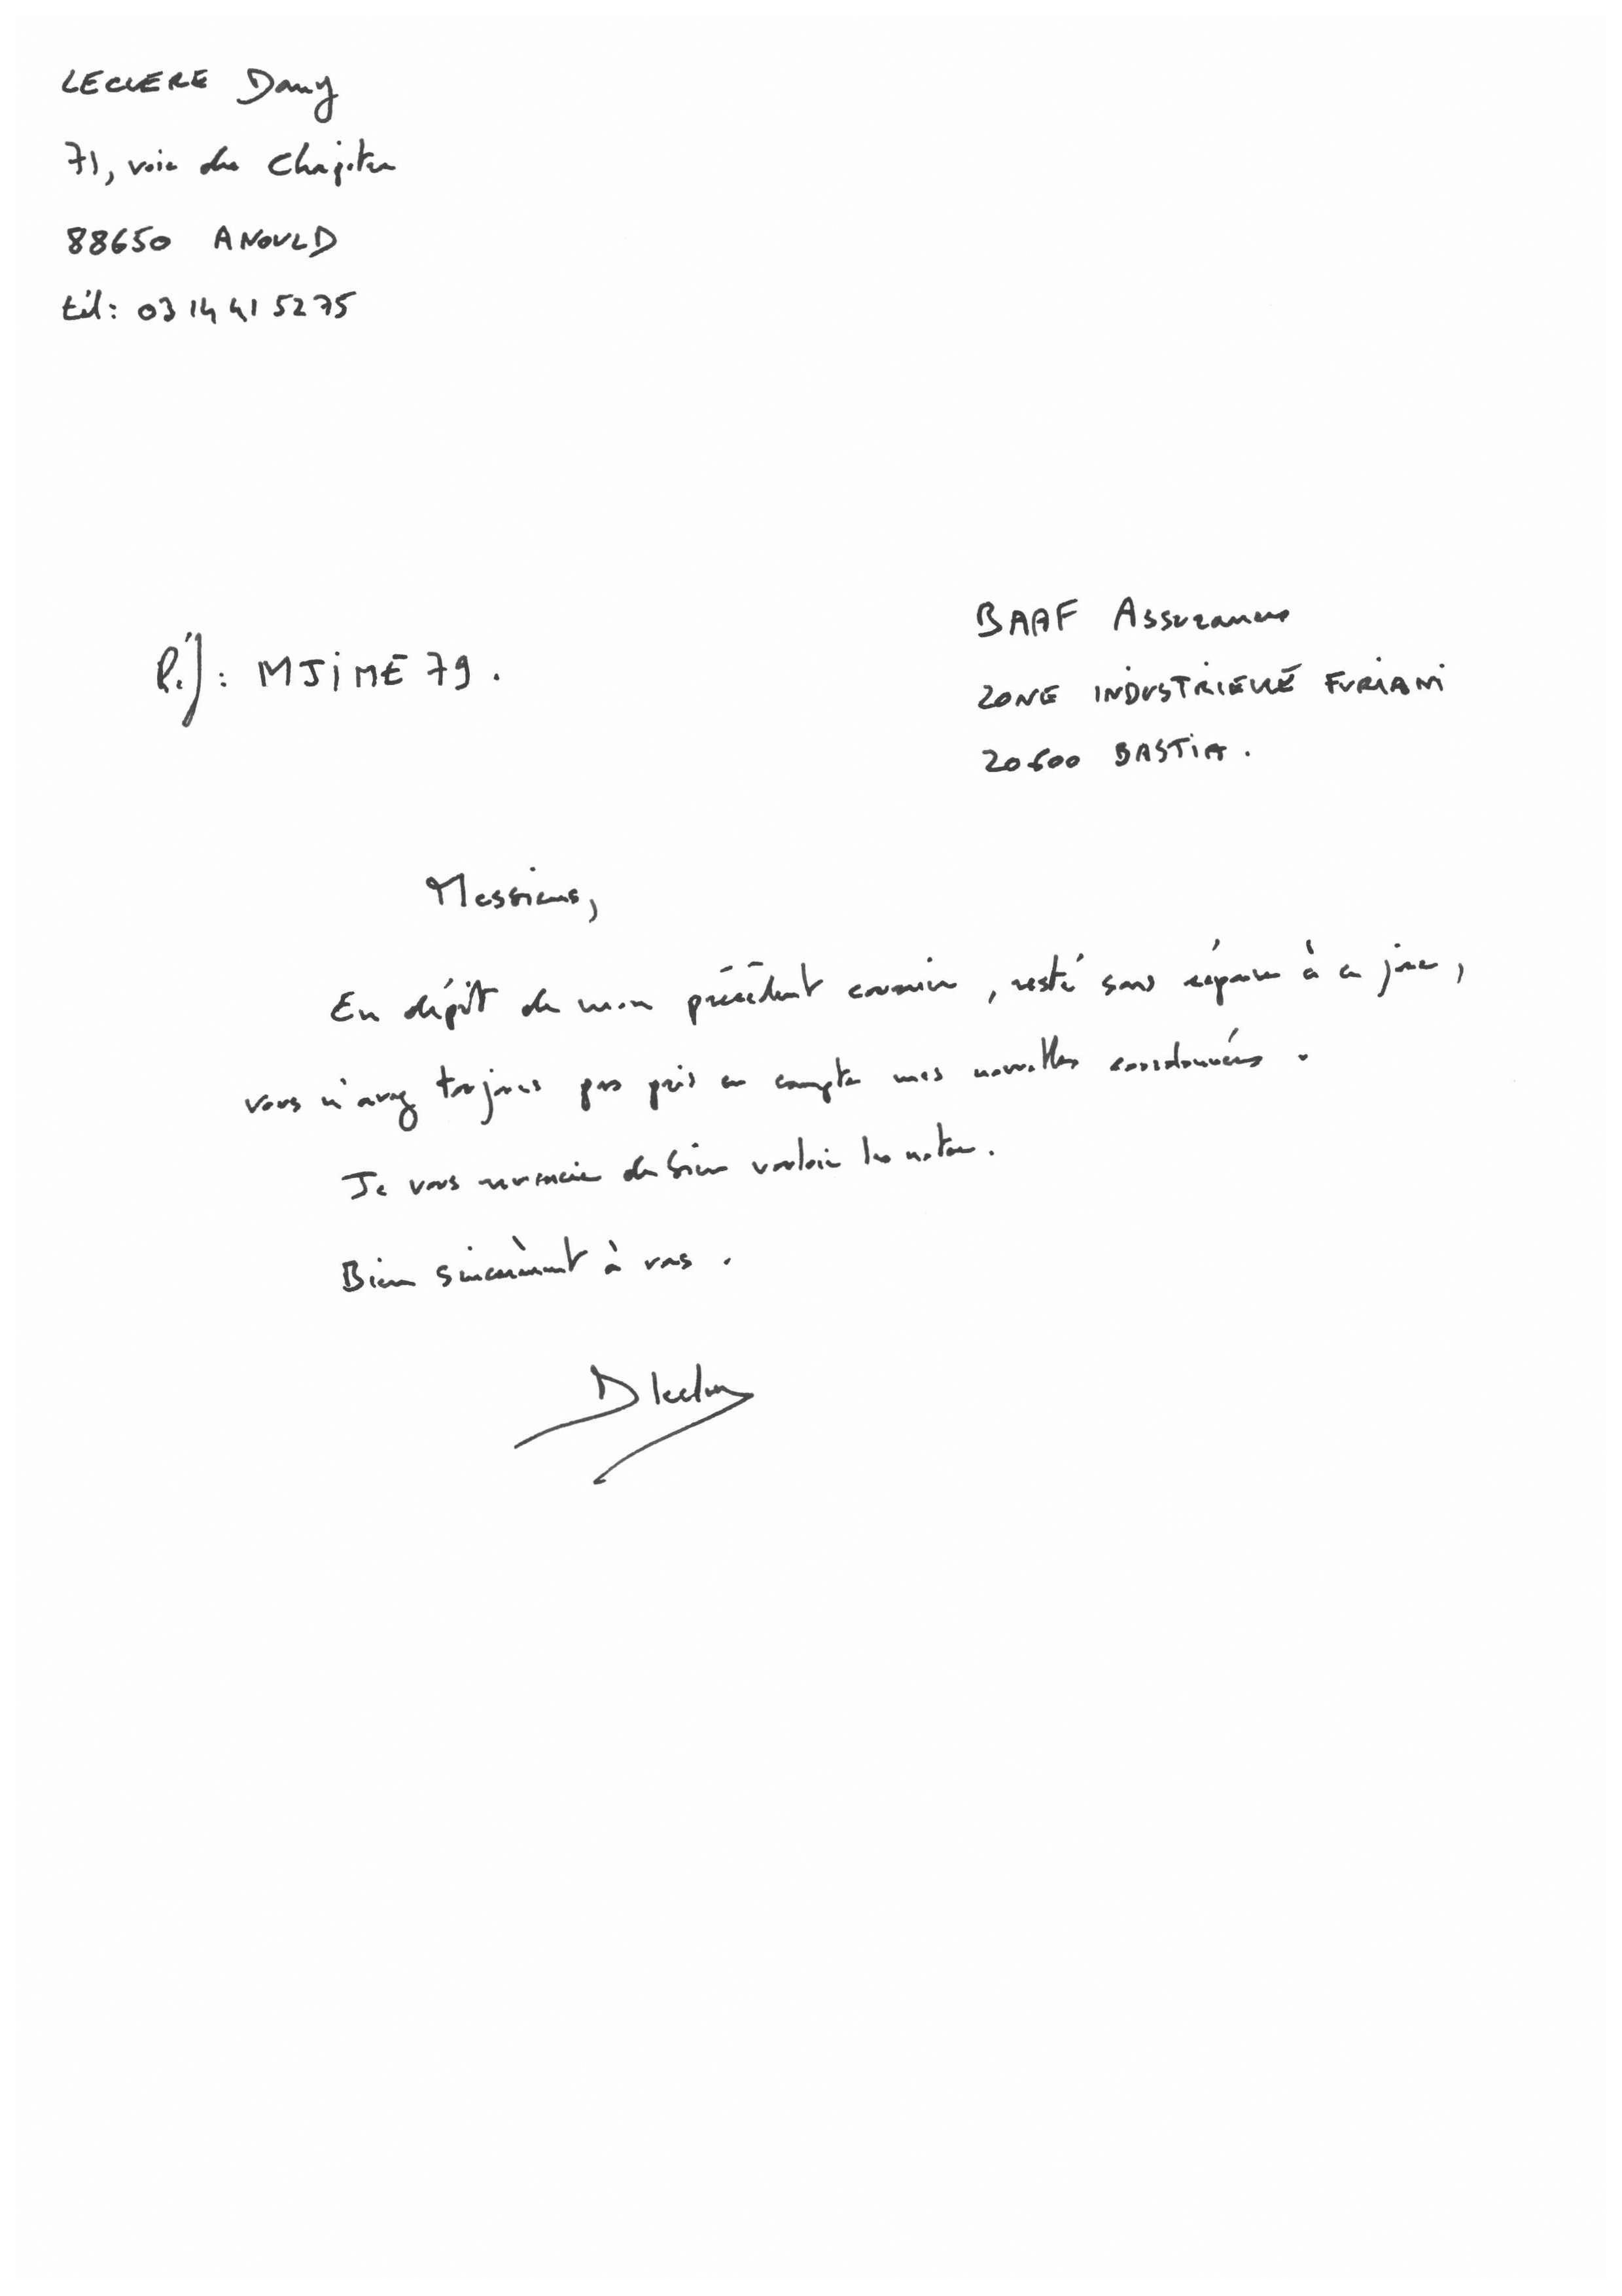 LECLERE Dany
71, voie du Chapitre
88650 ANOULD
tél: 03 14 41 52 75
BAAF Assurances
Réf: MJiME79.
ZONE INDUSTRIELLE FURIANI
20600 BASTIA.
Messieurs,
En dépit de mon précédent courrier, resté sans réponse à ce jour,
vous n'avez toujours pas pris en compte mes nouvelles coordonnées.
Je vous remercie de bien vouloir les noter.
Bien sincèrement à vous.
D Leclere